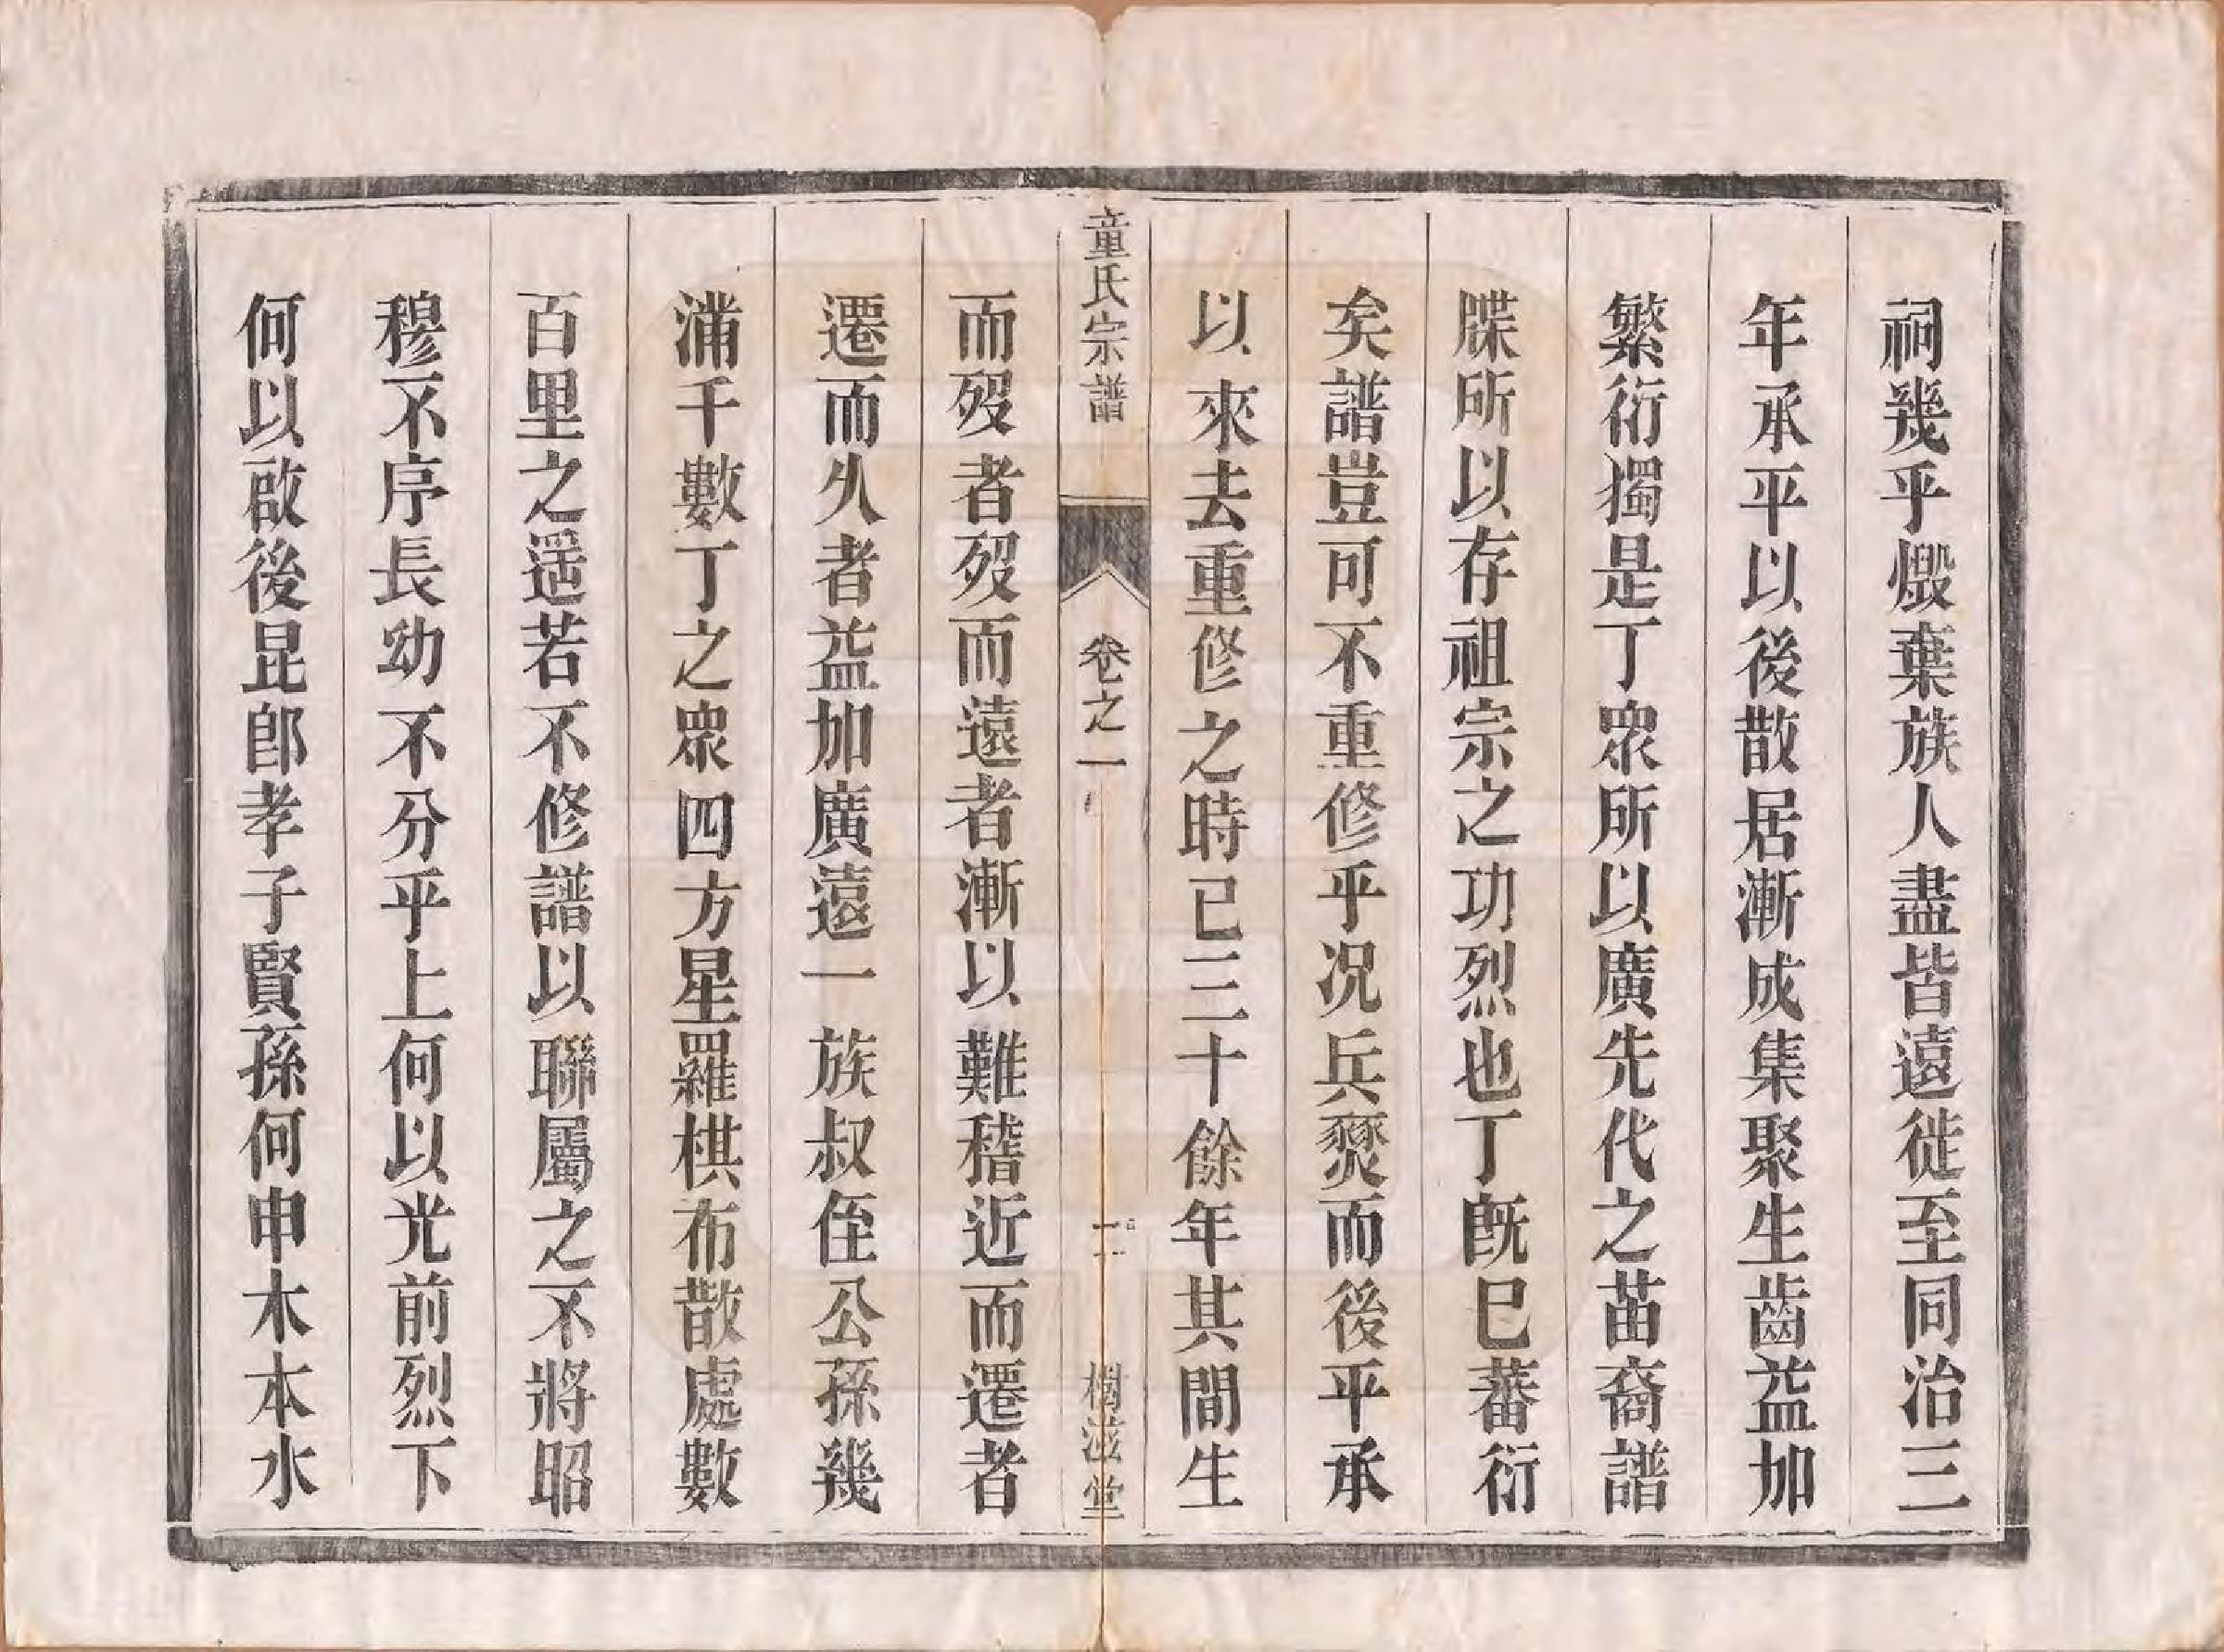 祠幾乎燬棄族人盡皆遠徙至同治三
年承平以後散居漸成集聚生齒益加
繁衍獨是丁眾所以廣先代之苗裔譜
牒所以存祖宗之功烈也丁既巳蕃衍
矣譜豈可不重修乎况兵燹而後平承
以來去重修之時已三十餘年其間生
童氏宗譜
卷之一
樹滋堂
而歿者歿而遠者漸以難稽近而遷者
遷而乆者益加廣遠一族叔侄公孫幾
滿千數丁之眾四方星羅棋布散處數
百里之遥若不修譜以聯屬之不將昭
穆不序長幼不分乎上何以光前烈下
何以啟後昆卽孝子賢孫何申木本水